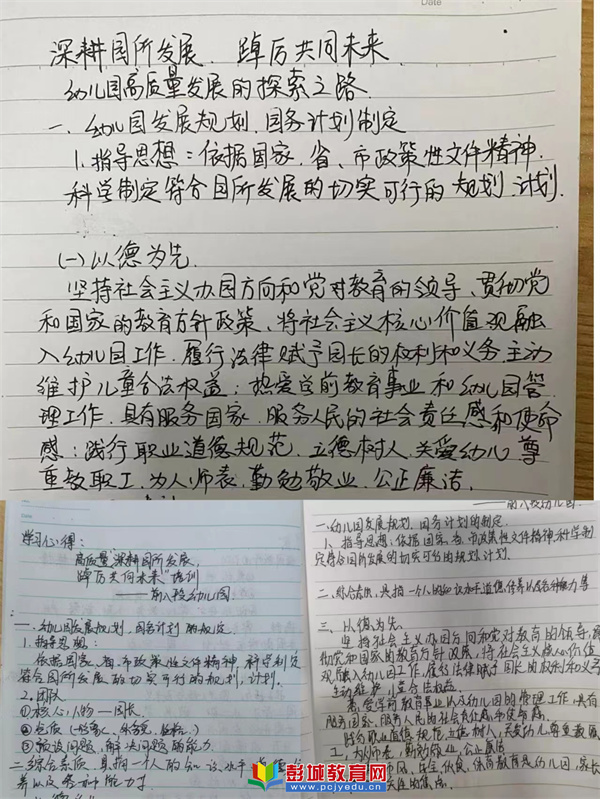 Date
深耕园所发展、踔厉共同未来
幼儿园高质量发展的探索之路.
一、幼儿园发展规划、园务计划制定
1.指导思想:依据国家、省、市政策性文件精神.
科学制定符合园所发展的切实可行的规划、计划.
(一)以德为先.
坚持社会主义办园方向和党对教育的领导、贯彻党
和国家的教育方针政策、将社会主义核心价值观融
入幼儿园工作.履行法律赋予园长的权利和义务.主动
维护儿童合法权益;热爱学前教育事业和幼儿园管
理工作.具有服务国家、服务人民的社会责任感和使命
感;践行职业道德规范.立德树人.关爱幼儿.尊
重教职工.为人师表.勤勉敬业.公正廉洁.
学习心得:
高质量"深耕园所发展,
踔厉共同未来"培训
幼儿园
一、幼儿园发展规划、园务计划的制定
1.指导思想:
依据国家、省、市政策性文件精神,科学制定
符合园所发展的切实可行的规划、计划.
2.团队
①核心人物——园长.
③预设问题、解决问题的能力.
一.幼儿园发展规划.园务计划的制定.
1、指导思想:依据国家、省、市政策性文件精神,科学制
定符合园所发展的切实可行的规划、计划.
三、以德为先.
坚持社会主义办园方向和党对教育的领导,贯
彻党和国家的教育方针政策,将社会主义核心价值
观融入幼儿园工作,履行法律赋予园长的权利和义务
主动维护儿童合法权益.
热爱学前教育事业以及幼儿园的管理工作,具有
服务国家、服务人民的社会责任感和使命感.
践行职业道德规范,立德树人,关爱幼儿,尊重教职
工,为人师表,勤勉敬业,公正廉洁
彭城教育网
www.pcjyedu.cn